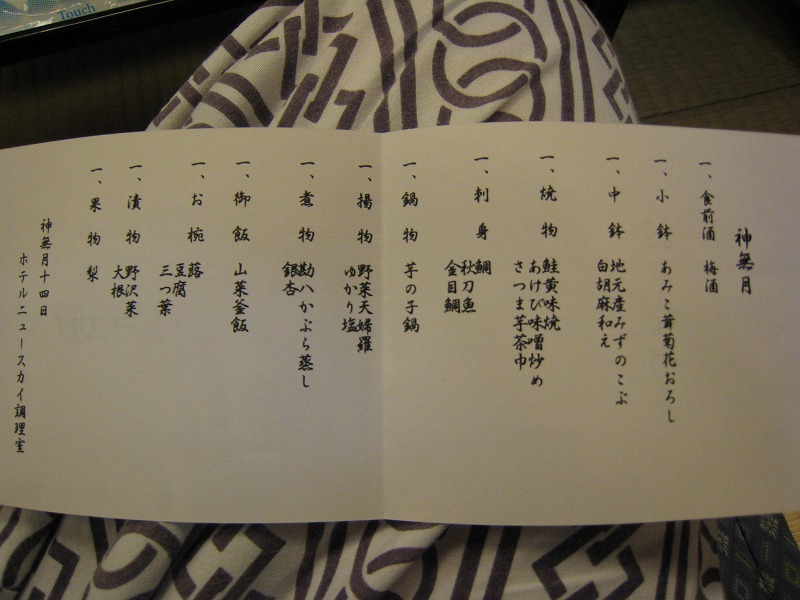 神無月
一、食前酒 梅酒
一、小鉢 あみこ茸菊花おろし
一、中鉢 地元産みずのこぶ
白胡麻和え
一、焼物 鮭黄味焼
あけび味噌炒め
さつま芋茶巾
一、刺身 鯛
秋刀魚
金目鯛
一、鍋物 芋の子鍋
一、揚物 野菜天婦羅
ゆかり塩
一、煮物 勘八かぶら蒸し
銀杏
一、御飯 山菜釜飯
一、お椀 蕗
豆腐
三つ葉
一、漬物 野沢菜
大根
一、果物 梨
神無月十四日
ホテルニュースカイ調理室
Touch